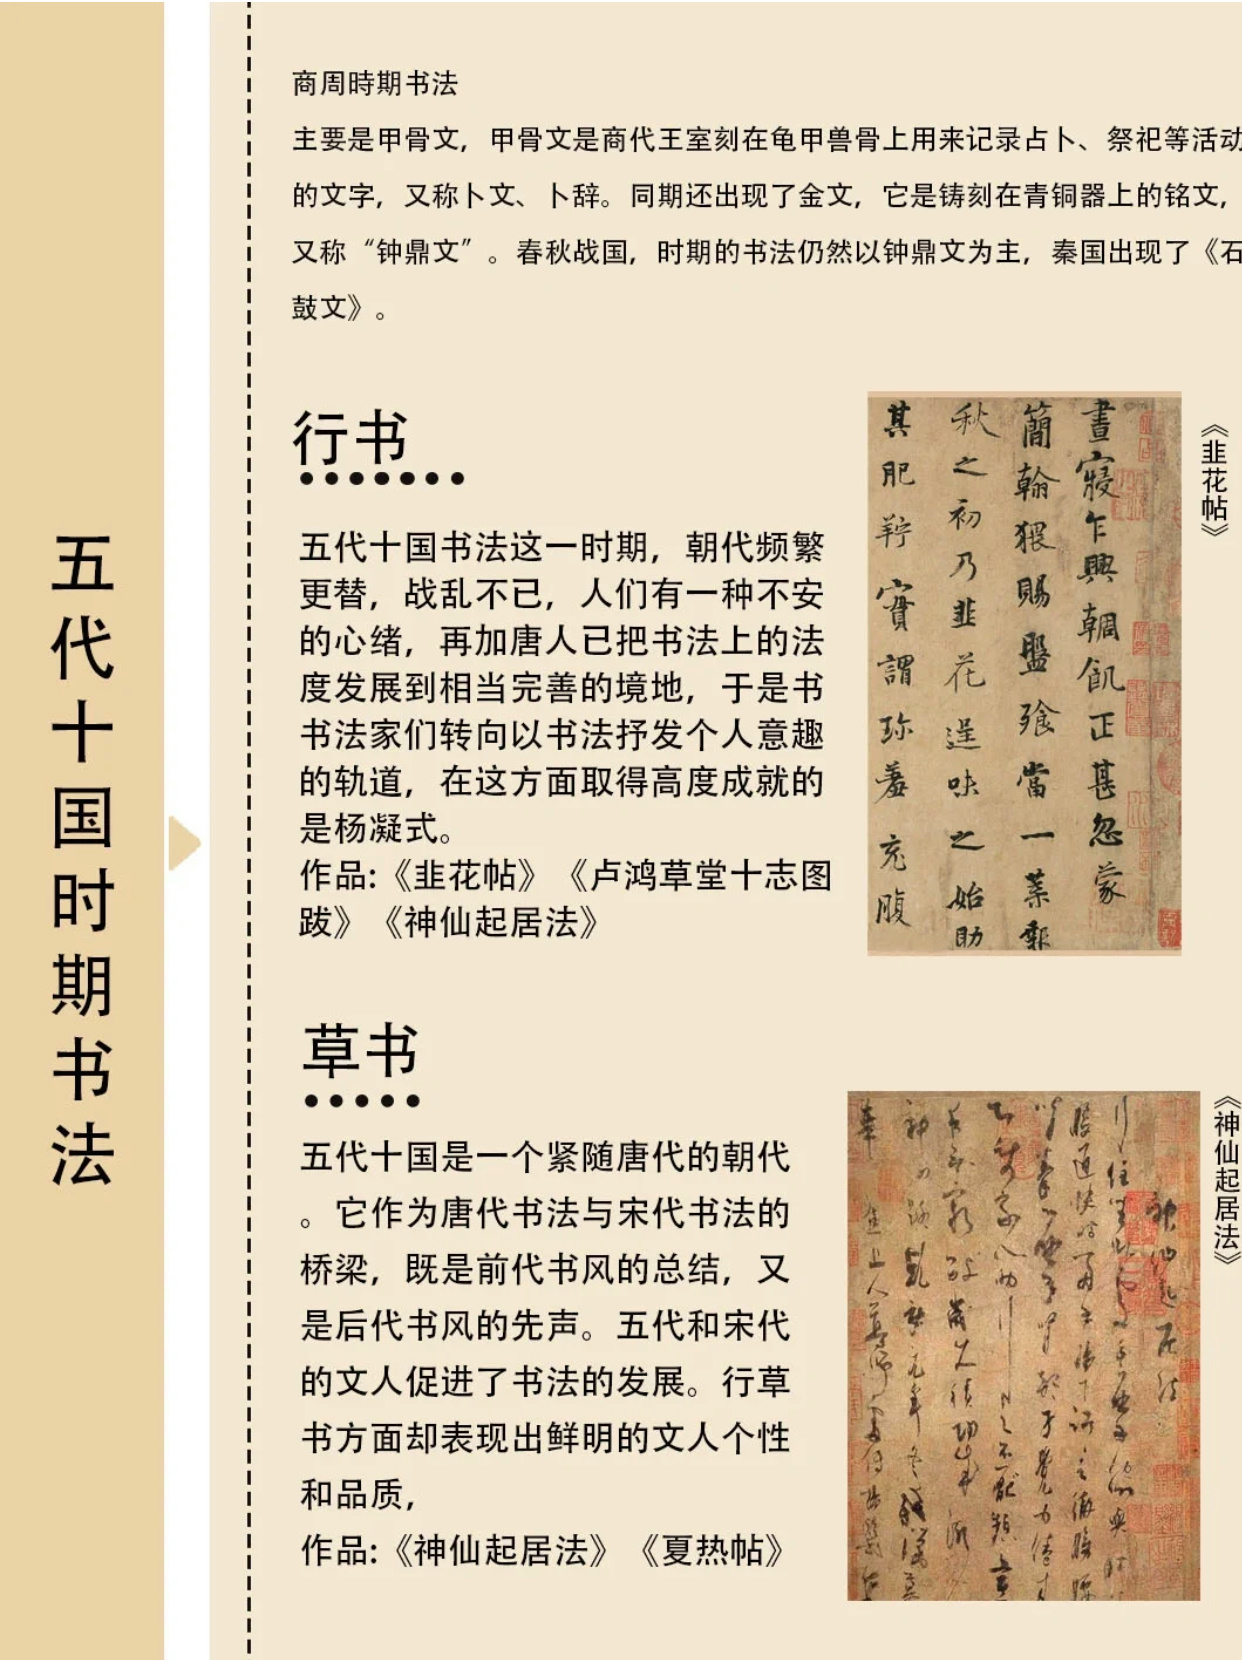 五代十国时期书法
商周時期书法
主要是甲骨文，甲骨文是商代王室刻在龟甲兽骨上用来记录占卜、祭祀等活动
的文字，又称卜文、卜辞。同期还出现了金文，它是铸刻在青铜器上的铭文，
又称“钟鼎文”。春秋战国，时期的书法仍然以钟鼎文为主，秦国出现了《石
鼓文》。
行书
五代十国书法这一时期，朝代频繁
更替，战乱不已，人们有一种不安
的心绪，再加唐人已把书法上的法
度发展到相当完善的境地，于是书
书法家们转向以书法抒发个人意趣
的轨道，在这方面取得高度成就的
是杨凝式。
作品:《韭花帖》《卢鸿草堂十志图
跋》《神仙起居法》
晝寢乍興朝飢正甚忽蒙
簡翰猥賜盤飧當一葉報
秋之初乃韭花逞味之始助
其肥羜實謂珍羞充腹
《韭花帖》
草书
五代十国是一个紧随唐代的朝代
。它作为唐代书法与宋代书法的
桥梁，既是前代书风的总结，又
是后代书风的先声。五代和宋代
的文人促进了书法的发展。行草
书方面却表现出鲜明的文人个性
和品质，
作品:《神仙起居法》《夏热帖》
神仙起居法
《神仙起居法》